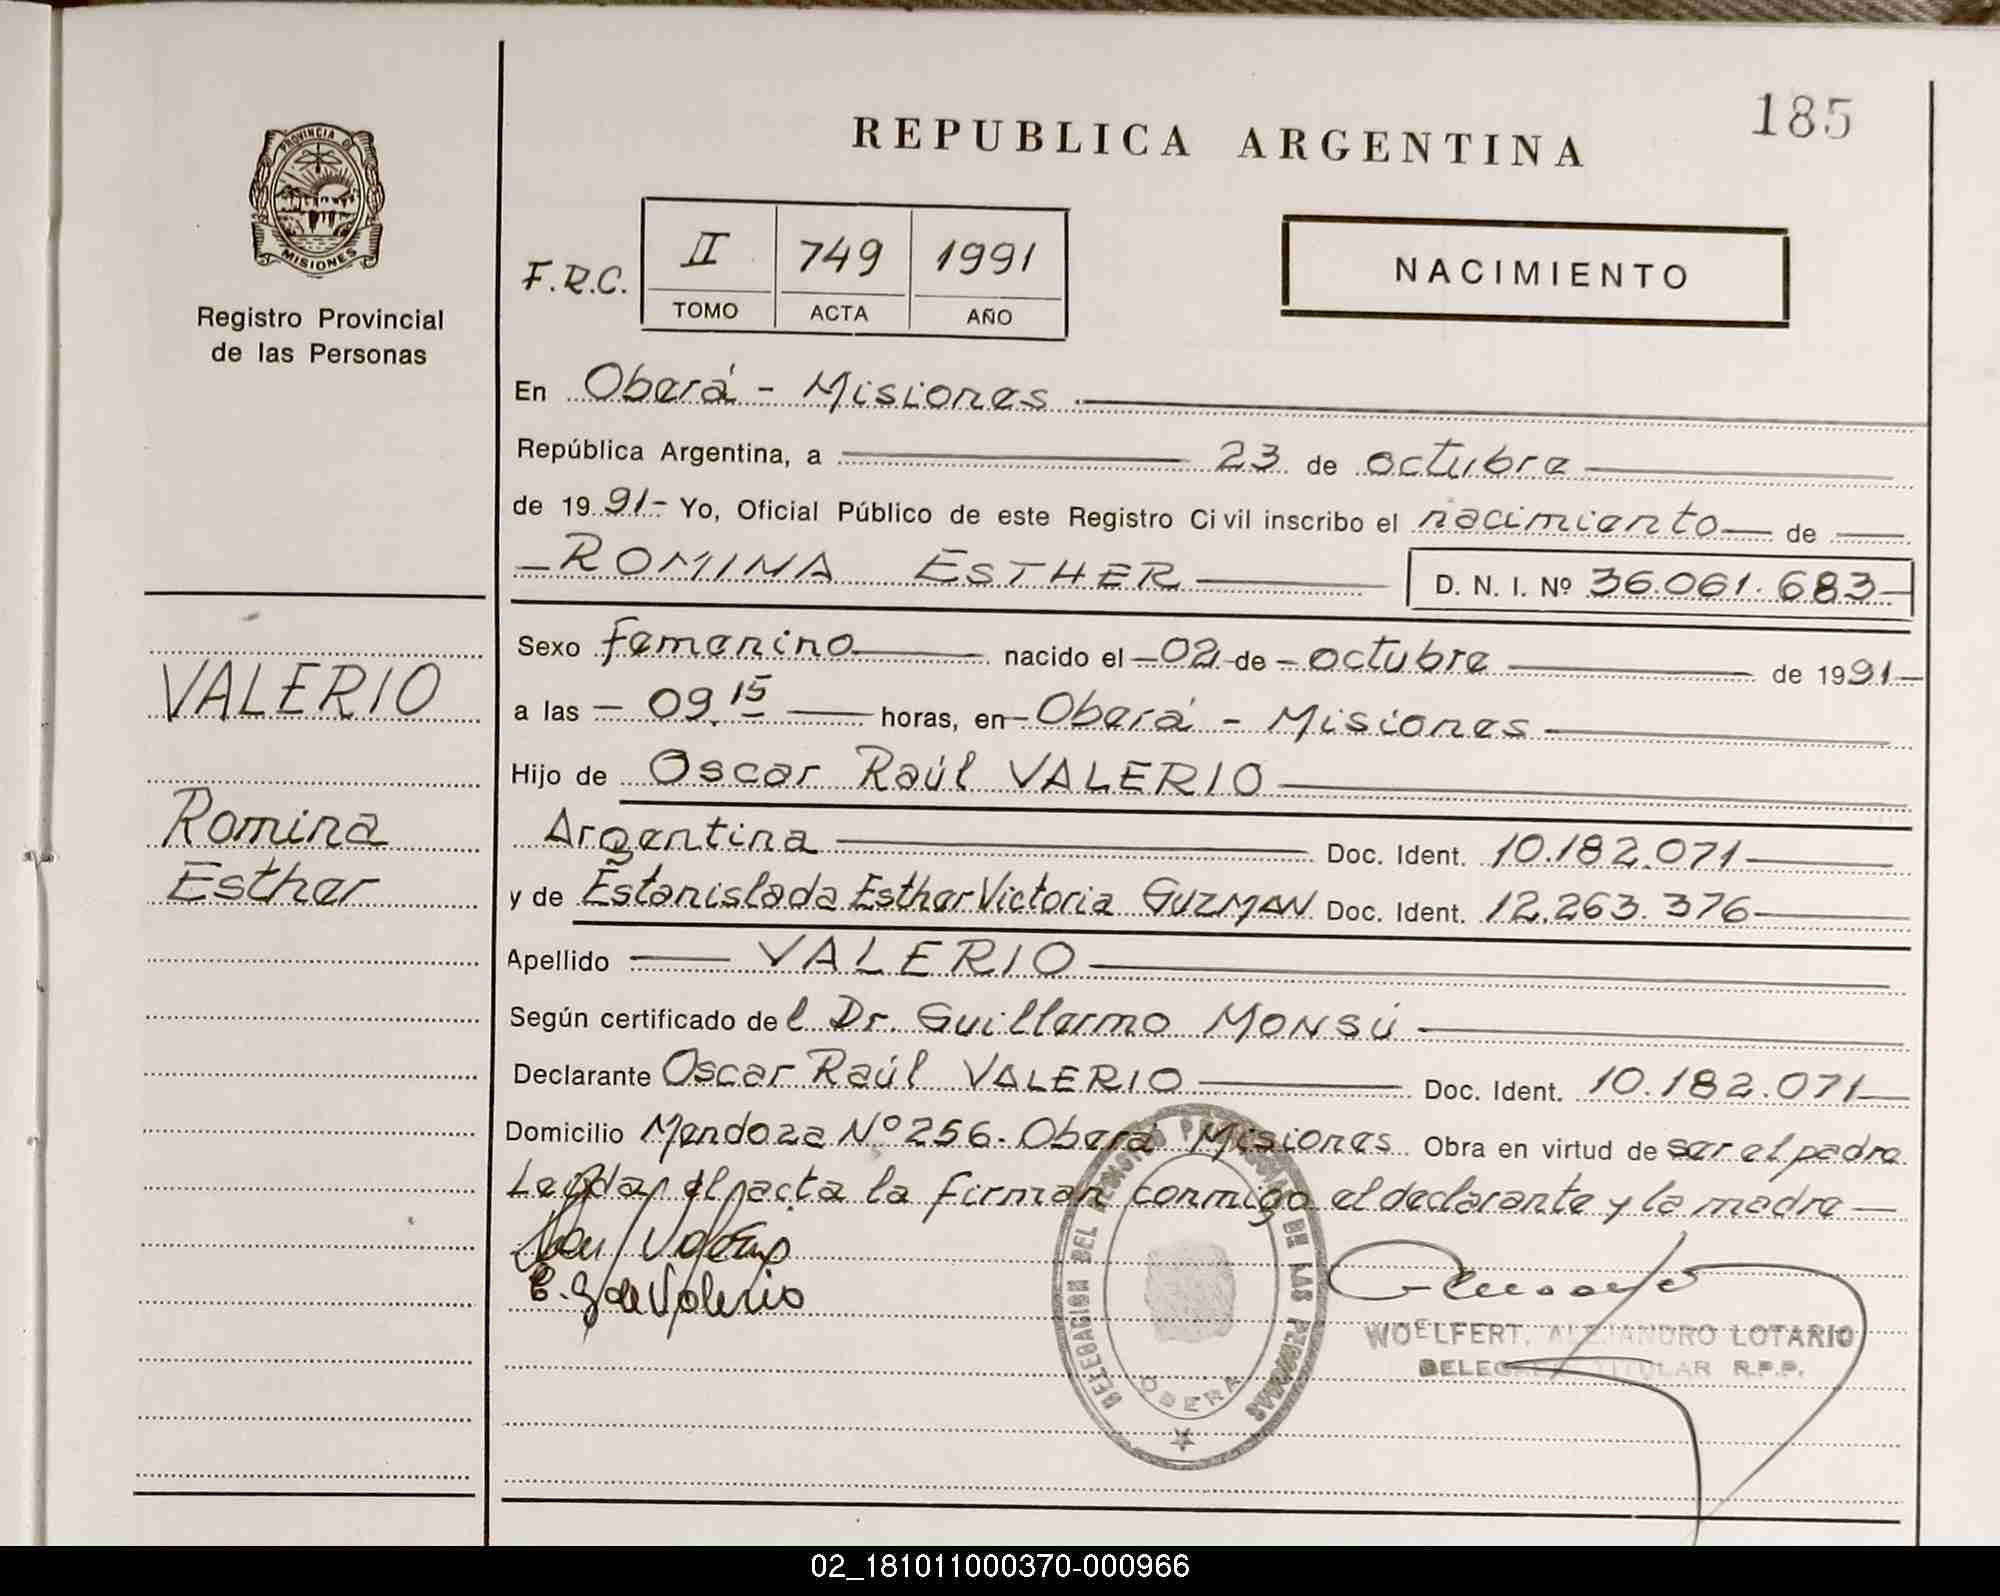 185
REPUBLICA ARGENTINA
PROVINCIA DE
MISIONES
Registro Provincial
de las Personas
F.R.C.
II 749 1991
TOMO ACTA AÑO
NACIMIENTO
En Oberá - Misiones
República Argentina, a 23 de octubre
de 1991- Yo, Oficial Público de este Registro Civil inscribo el nacimiento de
ROMINA ESTHER D. N. I. Nº 36.061.683
Sexo femenino nacido el 02 de octubre de 1991
a las 09.15 horas, en Oberá - Misiones
Hijo de Oscar Raúl VALERIO
Argentina Doc. Ident. 10.182.071
y de Estanislada Esther Victoria GUZMAN Doc. Ident. 12.263.376
Apellido VALERIO
Según certificado del Dr. Guillermo MONSÚ
Declarante Oscar Raúl VALERIO Doc. Ident. 10.182.071
Domicilio Mendoza Nº 256. Oberá Misiones Obra en virtud de ser el padre
Leída el acta la firman conmigo el declarante y la madre
E. G de Valerio
VALERIO
Romina
Esther
DELEGACION DEL REGISTRO PROVINCIAL DE LAS PERSONAS
OBERA
WOELFERT, ALEJANDRO LOTARIO
DELEGADO TITULAR R.P.P.
02_181011000370-000966